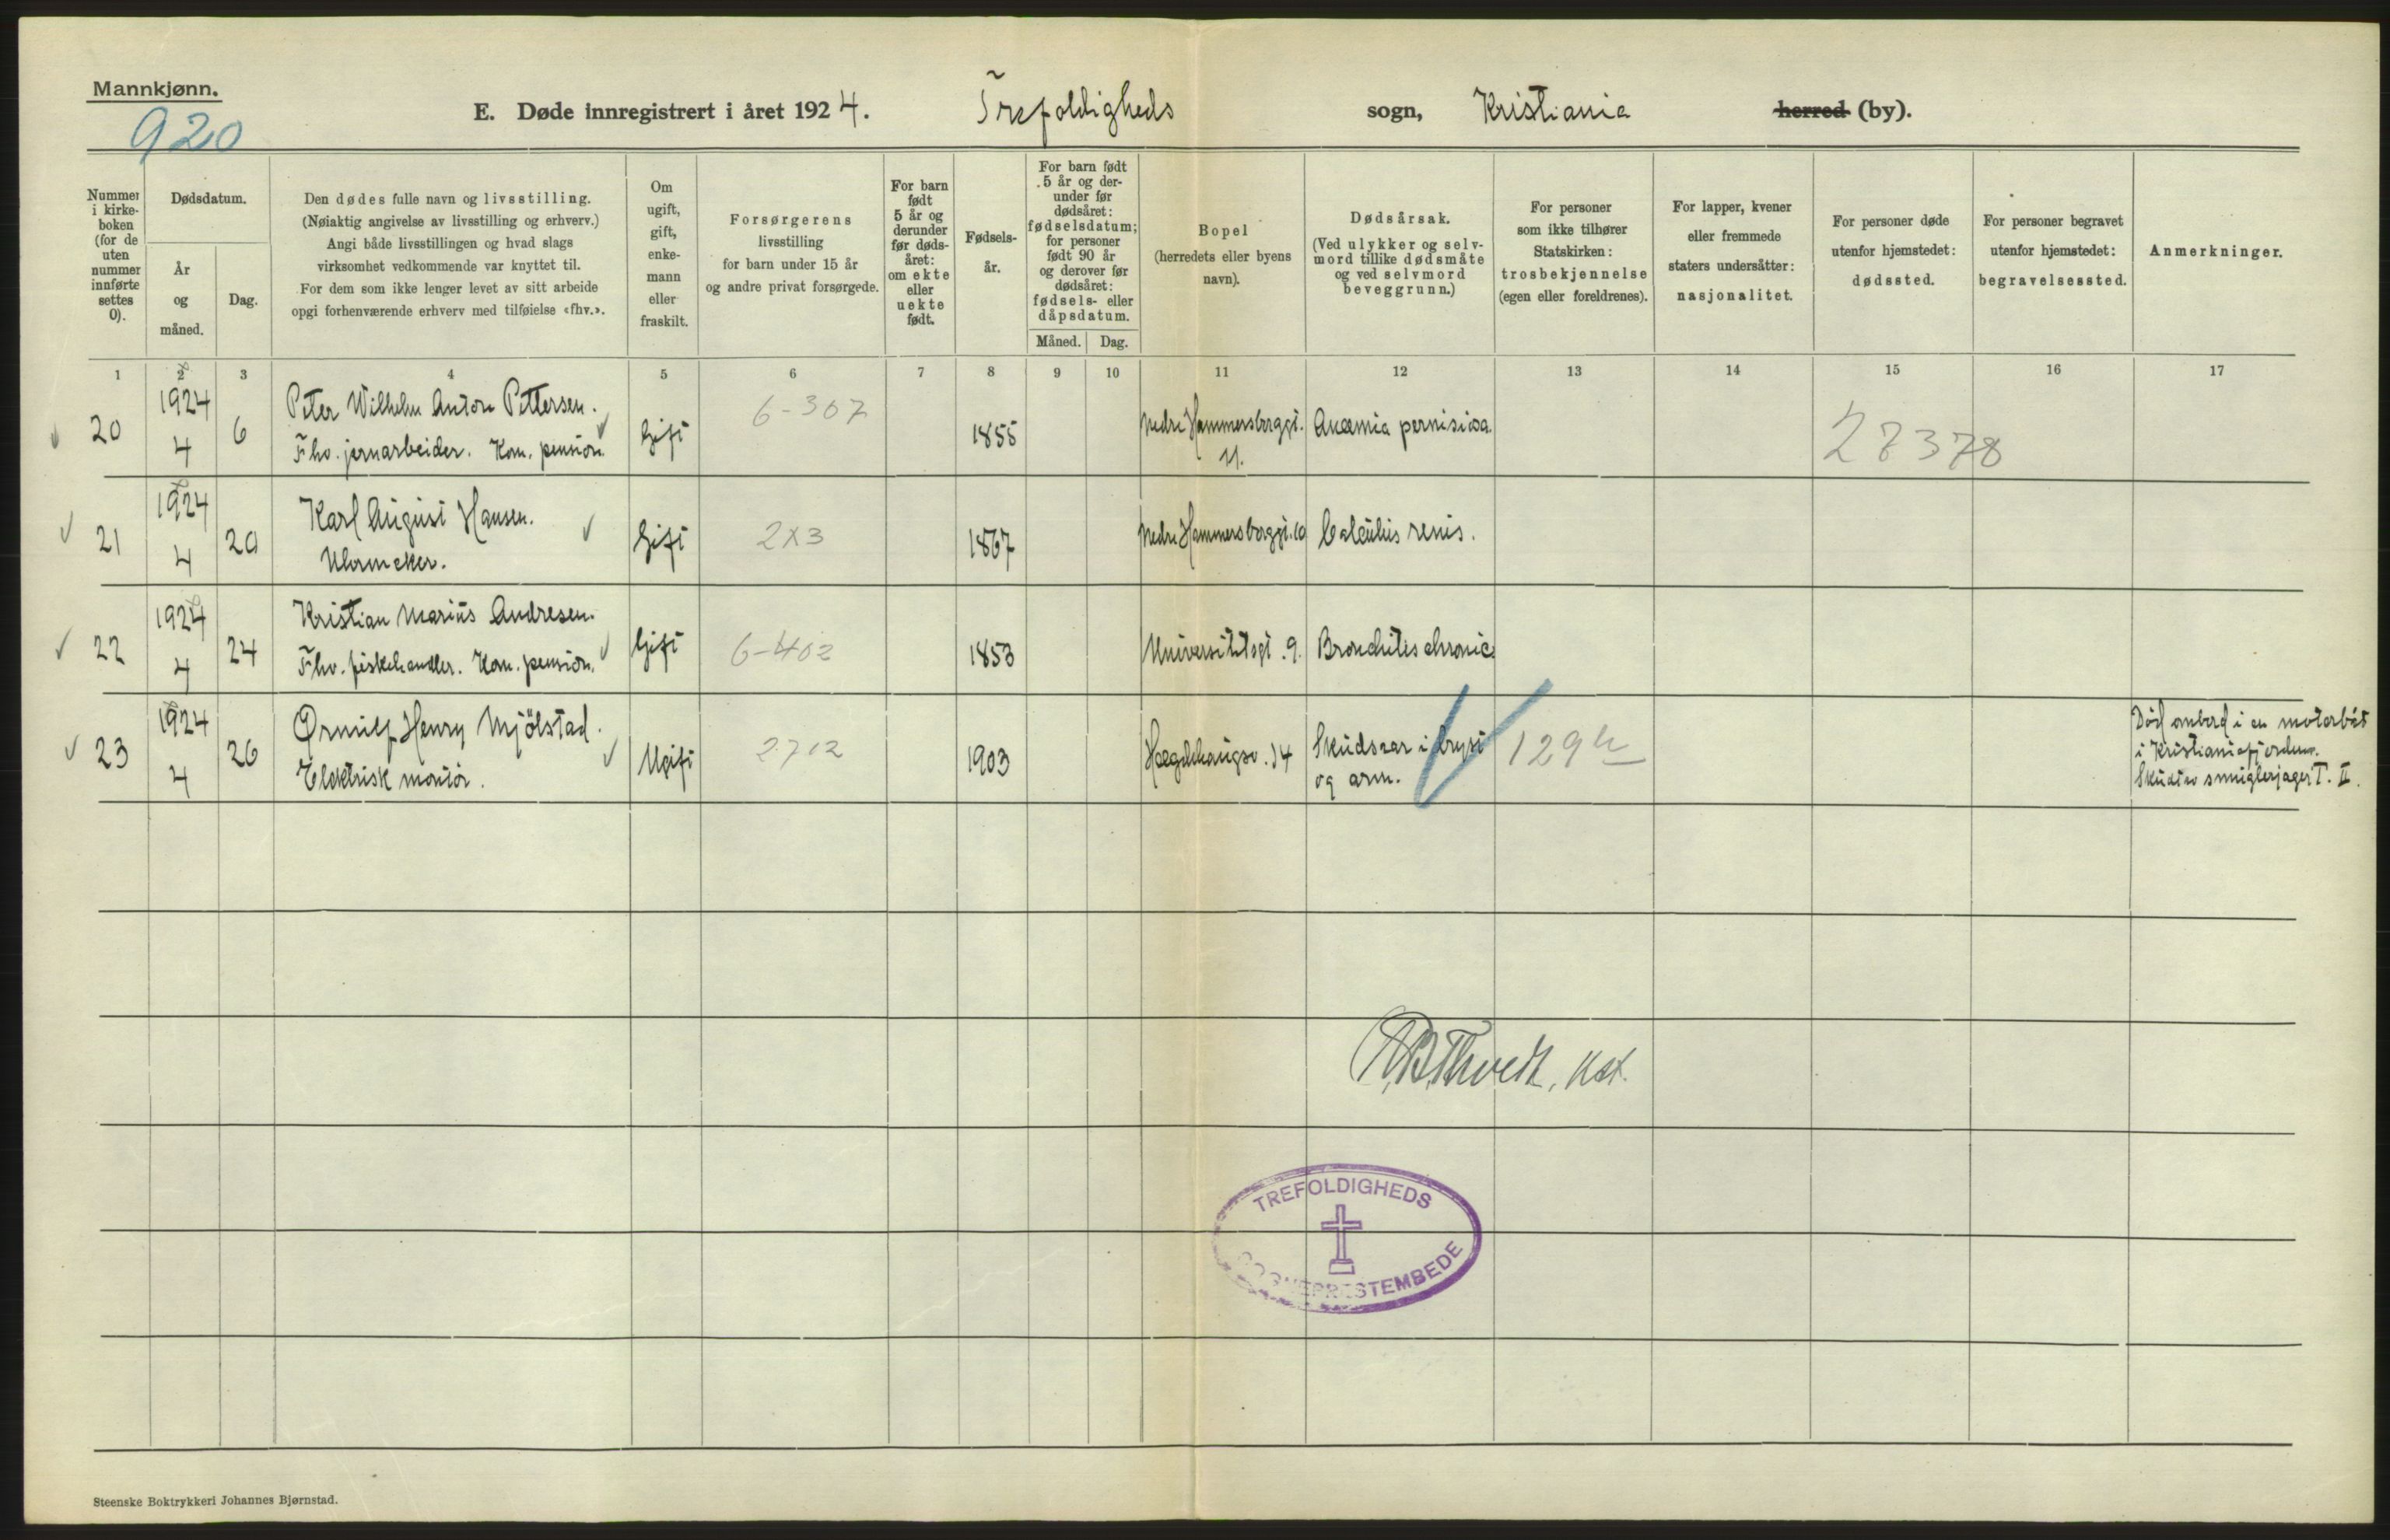 Mannkjønn.
920
E. Døde innregistrert i året 1924. Trefoldigheds sogn, Kristiania herred (by).
Nummer i kirke-boken (for de uten nummer innførte settes 0).
Dødsdatum.
År og måned.
Dag.
Den dødes fulle navn og livsstilling.
(Nøiaktig angivelse av livsstilling og erhverv.)
Angi både livsstillingen og hvad slags
virksomhet vedkommende var knyttet til.
For dem som ikke lenger levet av sitt arbeide
opgi forhenværende erhverv med tilføielse «fhv.».
Om ugift, gift, enke-mann eller fraskilt.
Forsørgerens
livsstilling
for barn under 15 år
og andre privat forsørgede.
For barn født 5 år og derunder før døds-året: om ekte eller uekte født.
Fødsels-år.
For barn født 5 år og der-under før dødsåret: fødselsdatum; for personer født 90 år og derover før dødsåret: fødsels- eller dåpsdatum.
Måned. Dag.
Bopel
(herredets eller byens
navn).
Dødsårsak.
(Ved ulykker og selv-
mord tillike dødsmåte
og ved selvmord
beveggrunn.)
For personer
som ikke tilhører
Statskirken:
trosbekjennelse
(egen eller foreldrenes).
For lapper, kvener
eller fremmede
staters undersåtter:
nasjonalitet.
For personer døde
utenfor hjemstedet:
dødssted.
For personer begravet
utenfor hjemstedet:
begravelsessted.
Anmerkninger.
1 2 3 4 5 6 7 8 9 10 11 12 13 14 15 16 17
20 1924 4 6 Peter Wilhelm Anton Pettersen.
Fhv. jernarbeider. Kom. pension.
Gift 6-307 1855 Nedre Hammersborggt. 11. Anæmia pernisiosa. 27378
21 1924 4 20 Karl August Hansen.
Uhrmaker.
Gift 2X3 1867 Nedre Hammersborggt. 10 Calculus renis.
22 1924 4 24 Kristian Marius Andresen.
Fhv. fiskehandler. Kom. pension.
Gift 6-402 1853 Universitetsgt. 9. Bronchites chronic
23 1924 4 26 Ørnulf Henry Mjölstad.
Elektrisk montør.
Ugift 2712 1903 Hægdehaugsv. 14 Skudsaar i bryst
og arm.
129
Död ombord i en motorbåt
i Kristianiafjorden.
Skudt av smuglerjager T. II.
Kst.
TREFOLDIGHEDS
SOGNEPRESTEMBEDE
Steenske Boktrykkeri Johannes Bjørnstad.